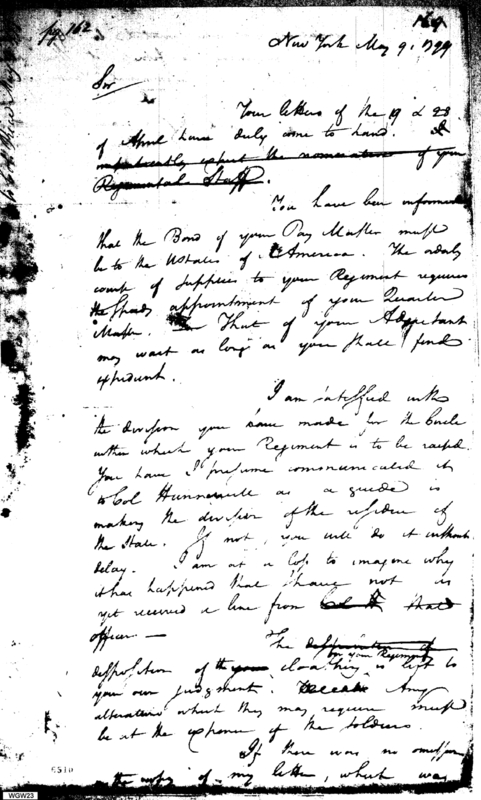 pg. 162
169
New York May 9. 1799
Sir
Your letters of the 19 & 28
of April have duly come to hand. I
impatiently expect the nomination of your
Regimental Staff.
You have been informed
that the Bond of your Pay Master must
be to the UStates of America. The orderly
course of supplies to your Regiment requires
the speedy appointment of your Quarter
Master. That of your Adjutant
may wait as long as you shall find
expedient.
I am satisfied with
the division you have made for the Circle
within which your Regiment is to be raised.
You have I presume communicated it
to Col Hunnewill as a guide in
making the division of the residue of
the State. If not, you will do it without
delay. I am at a loss to imagine why
it has happened that I have not as
yet received a line from that
officer. —
The
disposition of the cloathing for your Regiment is left to
your own judgment. Any
alterations which they may require must
be at the expence of the soldiers.
If there was no omission
the copy of my letter, which was
6510
WGW23